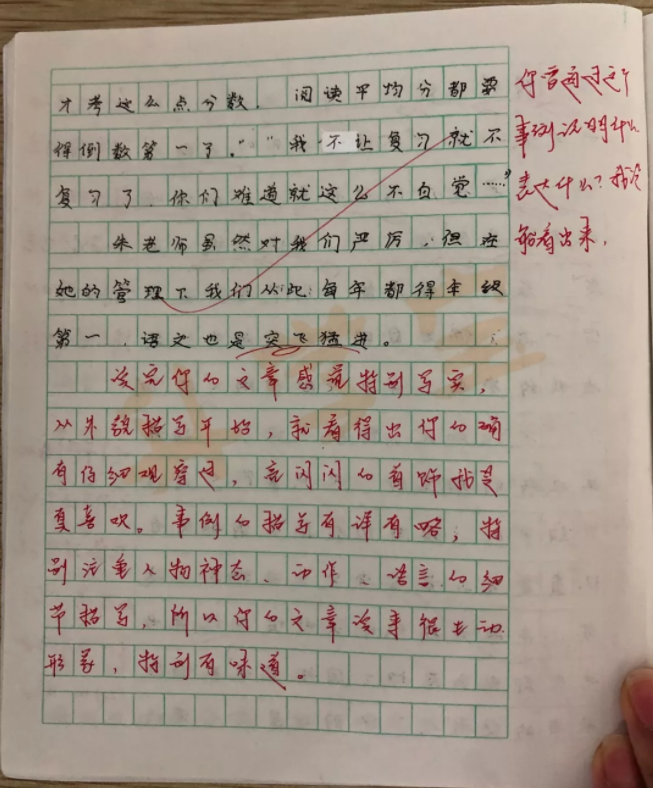 才考这么点分数，阅读平均分都要
得倒数第一了。”“我不让复习就不
复习了，你们难道就这么不自觉……”
朱老师虽然对我们严厉，但在
她的管理下我们从此每年都得年级
第一，语文也是突飞猛进。
你言而过这个
事例说明什么
表达什么？我没
能看出来，
读完你的文章感觉特别写实，
从外貌描写开始，就看得出你的确
有仔细观察过，亮闪闪的首饰我是
真喜欢。事例的描写有详有略，特
别注重人物神态、动作、语言的细
节描写，所以你的文章读来很生动
形象，特别有味道。